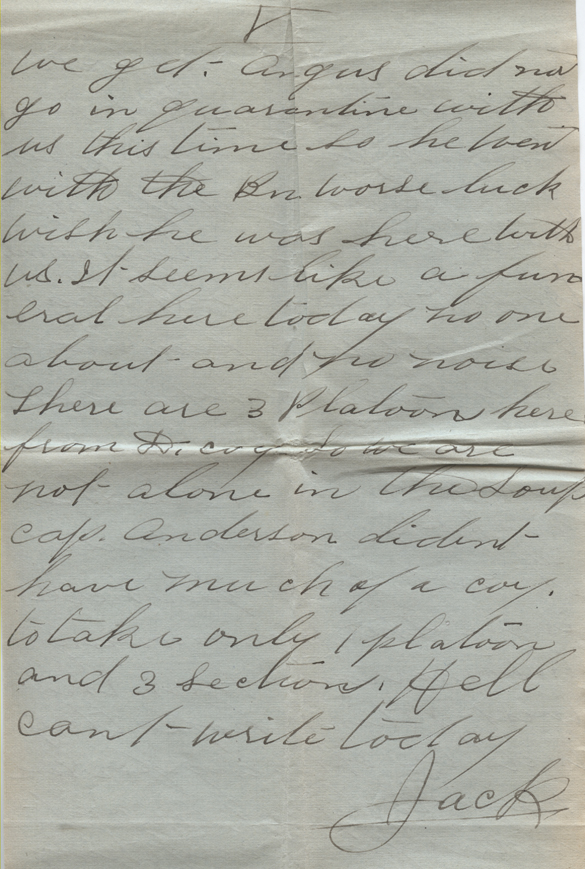 V
we get. Angus did not
go in quarentine with
us this time so he went
with the Bn worse luck
wish he was here with
us. It seems like a fun
eral here today no one
about and no noise
There are 3 Platoon here
from D. coy so we are
not alone in the soup
cap. Anderson dident
have much of a coy.
to take only 1 platoon
and 3 section. Hell
cant write today
Jack